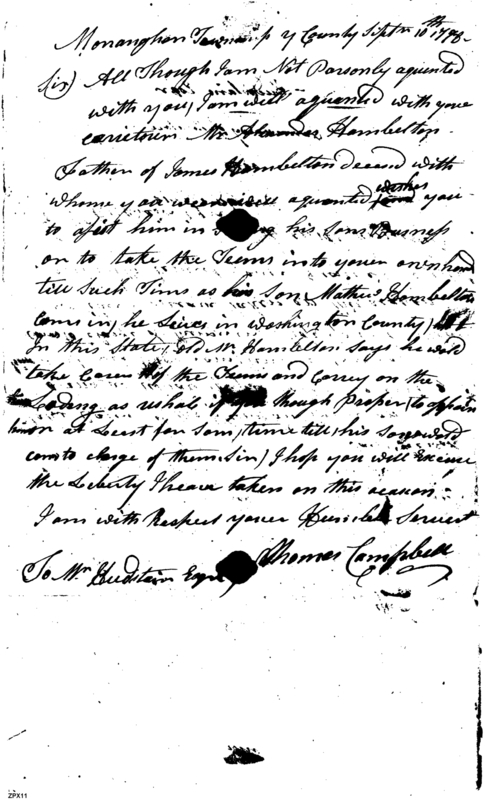 Monanghan Township y County Septr 10th 1798
Sir) All Though I am Not Parsonly aquented
with you, I am well aquented with your
Mr Alexander Hambelton
Father of James Hambelton decesd with
whome you well aquented wishes you
to asist him in his Sons Busness
or to take the Teems into youer own hand
till Such Tims as his Son Mathew Hambelton
Coms in, he Lives in Washington County,
In this State, old Mr Hambelton Says he wold
take Caree of the Teems and Carrey on the
Loding as ushal if you though Proper to
him or at Leest for Som, time till, his Son wold
com to charge of them. Sir, I hop you will Excuse
the Liberty I heave taken on this ocasion
I am with Respect youer Humble Servent
Thomas Campbell
To Mr Esqr
ZPX11